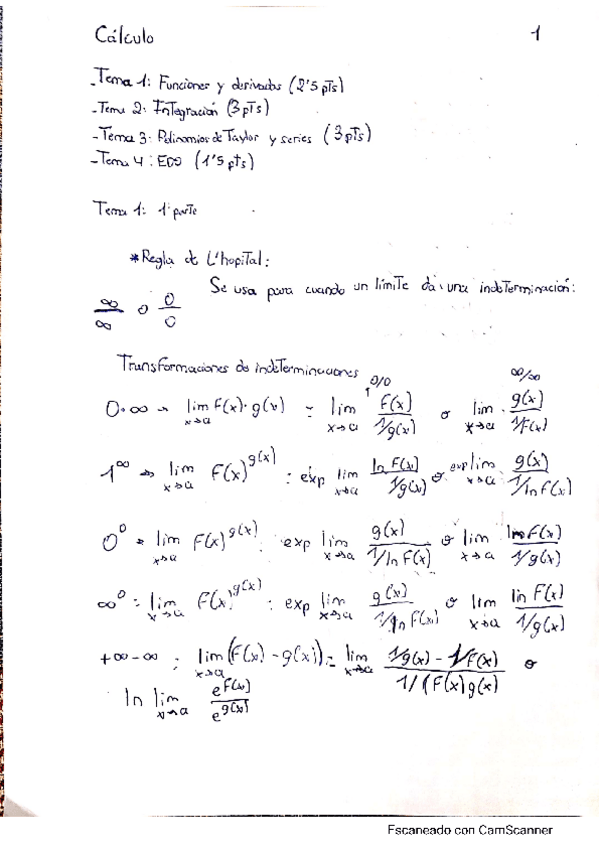 Cálculo 1
- Tema 1: Funciones y derivadas (2'5 pts)
- Tema 2: Integración (3 pTs)
- Tema 3: Polinomios de Taylor y series (3 pTs)
- Tema 4: EDO (1'5 pts)
Tema 1: 1ª parte
* Regla de L'hopital:
Se usa para cuando un límite da una indeterminación:
∞/∞ o 0/0
Transformaciones de indeterminaciones
0·∞ → lim x→a F(x)·g(x) = lim x→a F(x)/(1/g(x)) ↑ 0/0 o lim x→a g(x)/(1/F(x)) ∞/∞
1^∞ → lim x→a F(x)^g(x) : exp lim x→a ln F(x)/(1/g(x)) o exp lim x→a g(x)/(1/ln F(x))
0^0 = lim x→a F(x)^g(x) : exp lim x→a g(x)/(1/ln F(x)) o lim x→a ln F(x)/(1/g(x))
∞^0 = lim x→a F(x)^g(x) : exp lim x→a g(x)/(1/ln F(x)) o lim x→a ln F(x)/(1/g(x))
+∞-∞ : lim x→a (F(x) - g(x)) = lim x→a (1/g(x) - 1/F(x))/(1/(F(x)g(x)) o
ln lim x→a e^F(x)/e^g(x)
Escaneado con CamScanner